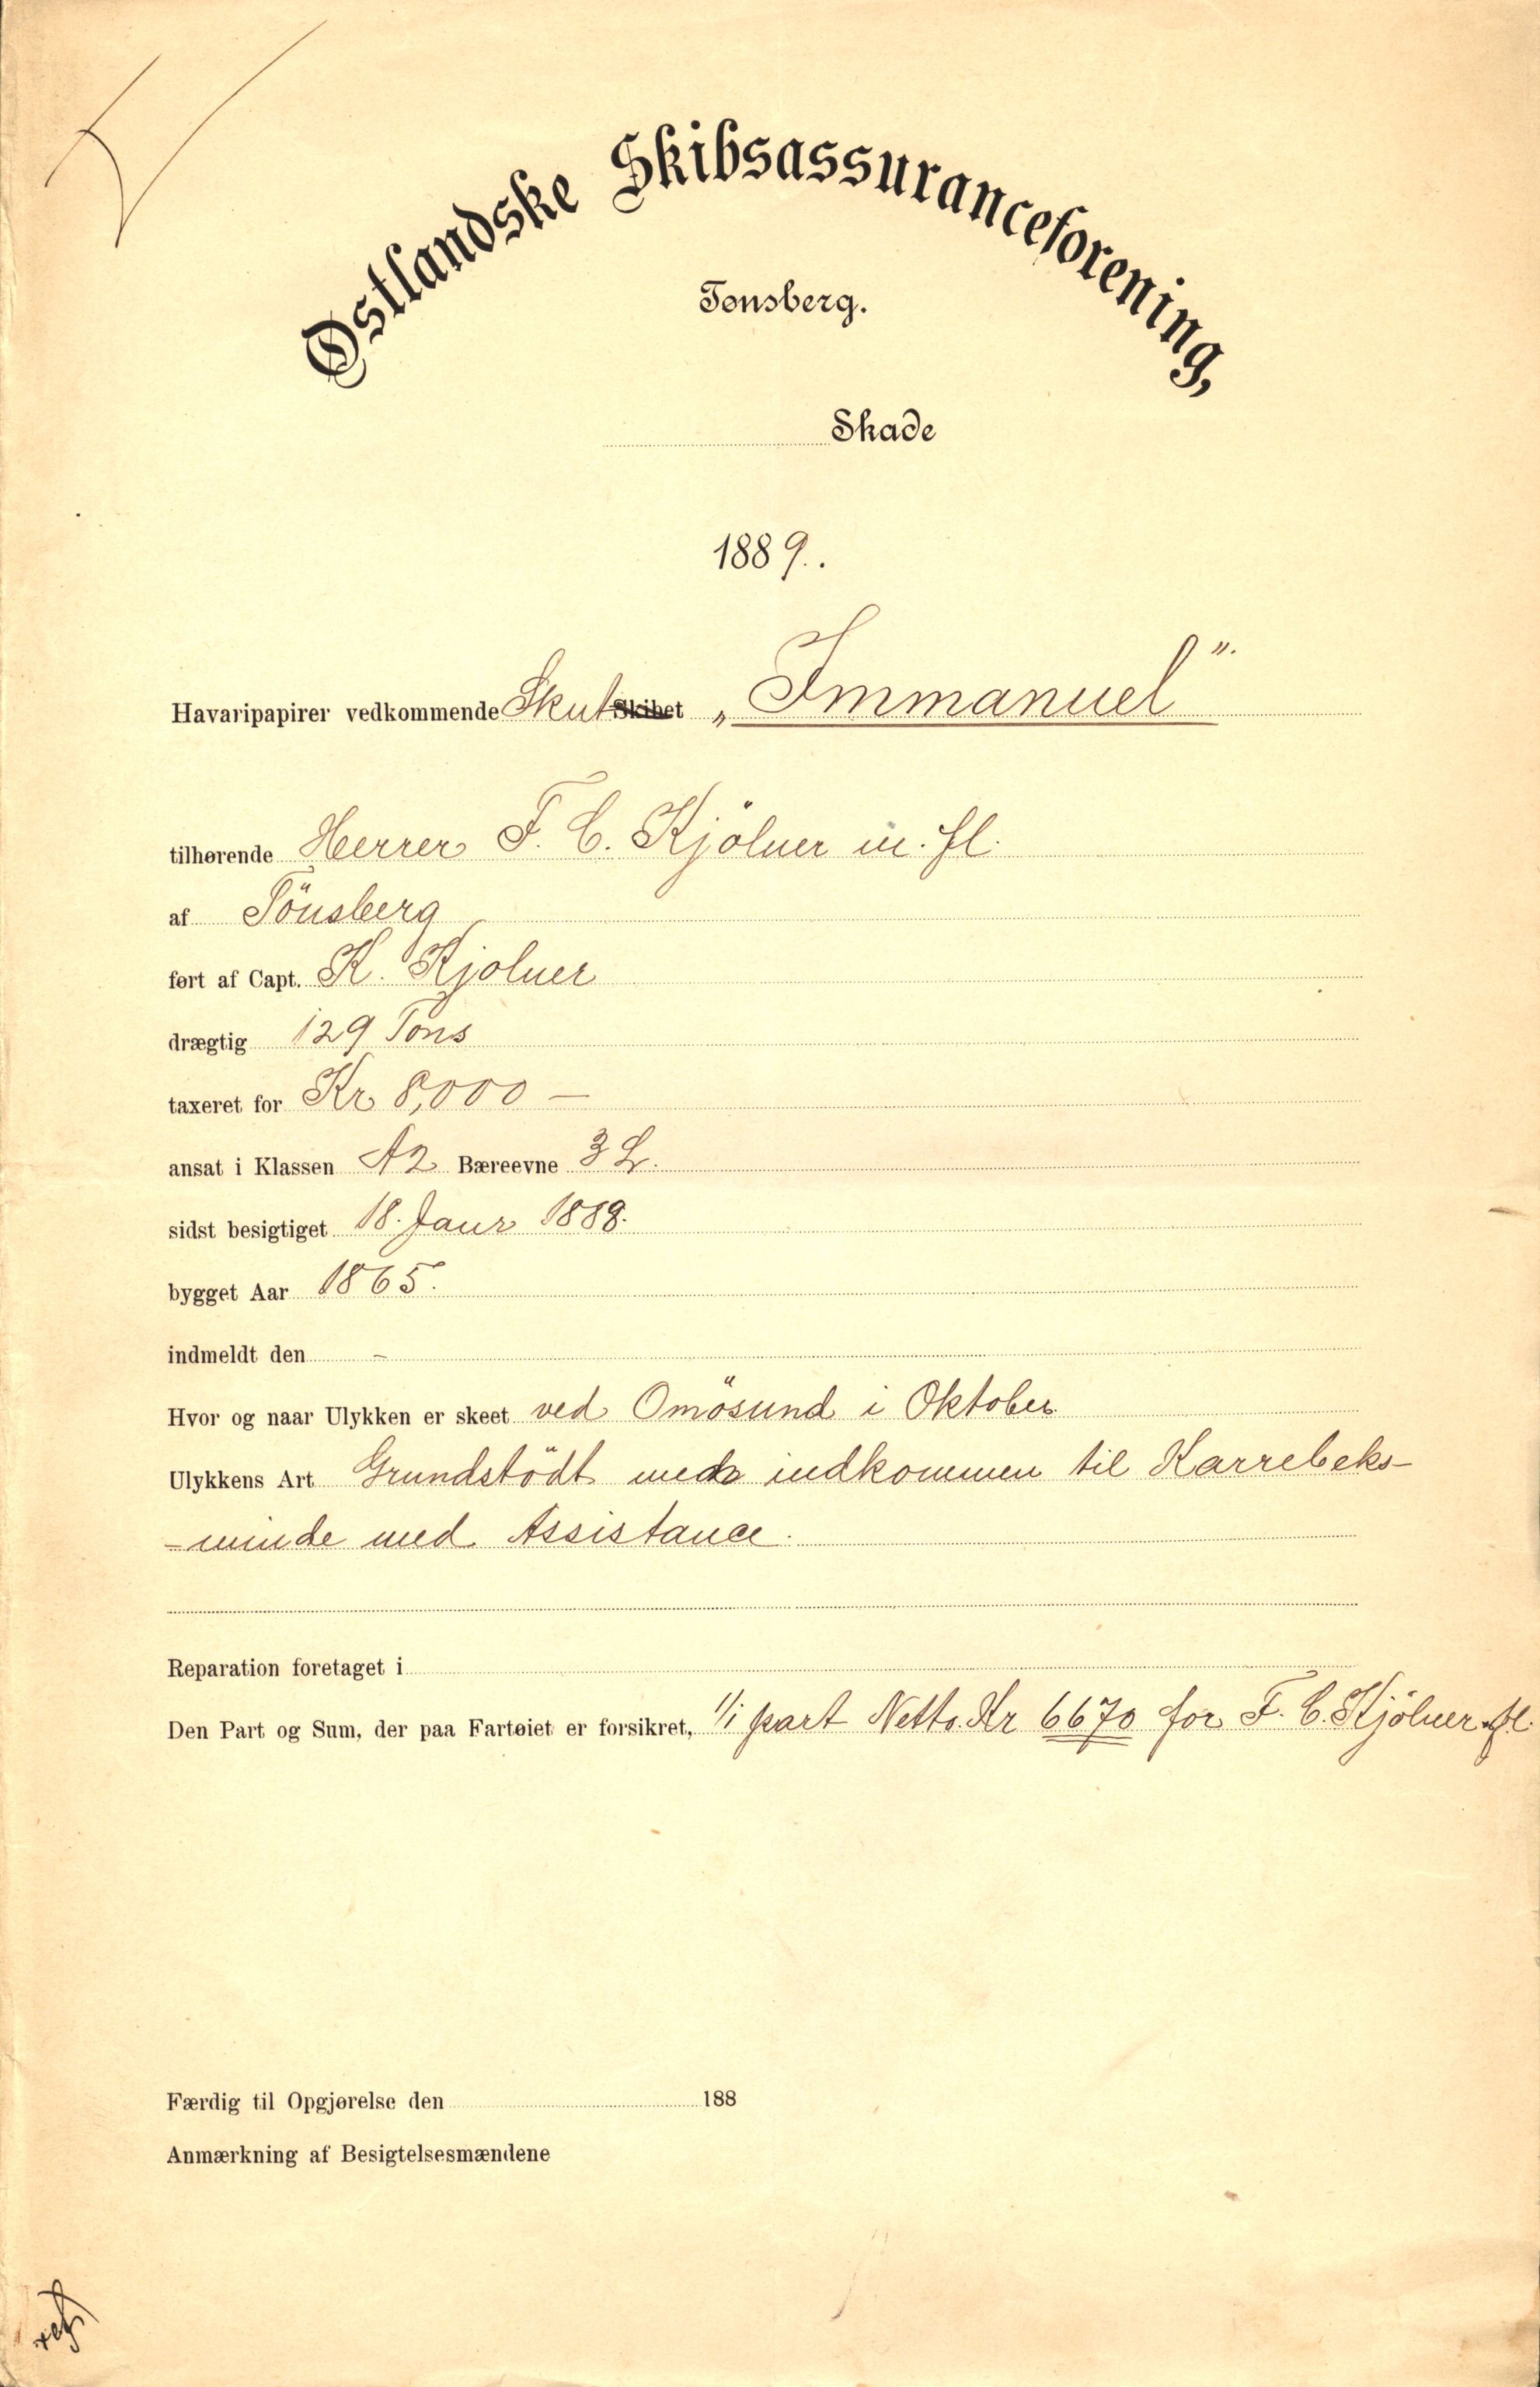 Østlandske Skibsassuranceforening,
Tønsberg.
Skade
1889.
Havaripapirer vedkommende Skut Skibet „Immanuel".
tilhørende Herrer F. C. Kjölner m. fl.
af Tönsberg
ført af Capt. K. Kjölner
drægtig 129 Tons
taxeret for Kr 8,000 –
ansat i Klassen A2 Bæreevne 3 L.
sidst besigtiget 18. Janr 1888.
bygget Aar 1865.
indmeldt den –
Hvor og naar Ulykken er skeet ved Omösund i Oktober
Ulykkens Art Grundstödt indkommen til Karrebeks-
-minde med Assistance.
Reparation foretaget i
Den Part og Sum, der paa Fartøiet er forsikret, 1/1 part Netto Kr 6670 for F. C. Kjölner fl.
Færdig til Opgjørelse den 188
Anmærkning af Besigtelsesmændene